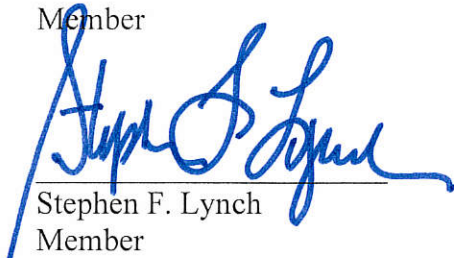 Member
Stephen F Lynch
Stephen F. Lynch
Member